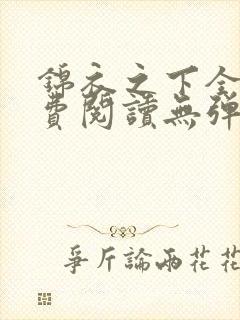 錦衣之下全
費閱讀無彈
爭斤論兩花花